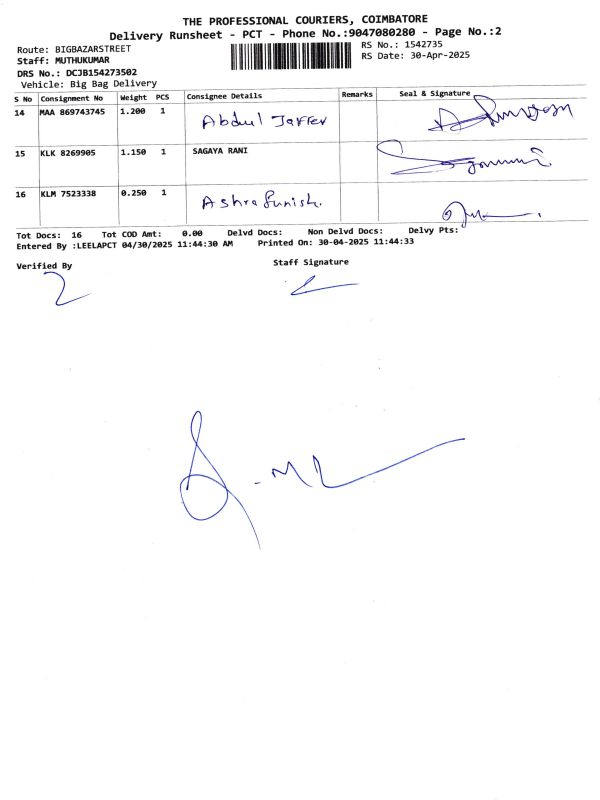 THE PROFESSIONAL COURIERS, COIMBATORE
Delivery Runsheet - PCT - Phone No.:9047080280 - Page No.:2
Route: BIGBAZARSTREET
RS No.: 1542735
Staff: MUTHUKUMAR
RS Date: 30-Apr-2025
DRS No.: DCJB154273502
Vehicle: Big Bag Delivery
S No Consignment No Weight PCS Consignee Details Remarks Seal & Signature
14 MAA 869743745 1.200 1 Abdul Jaffer
15 KLK 8269905 1.150 1 SAGAYA RANI
16 KLM 7523338 0.250 1 Ashrafunish.
Tot Docs: 16 Tot COD Amt: 0.00 Delvd Docs: Non Delvd Docs: Delvy Pts:
Entered By :LEELAPCT 04/30/2025 11:44:30 AM Printed On: 30-04-2025 11:44:33
Verified By Staff Signature